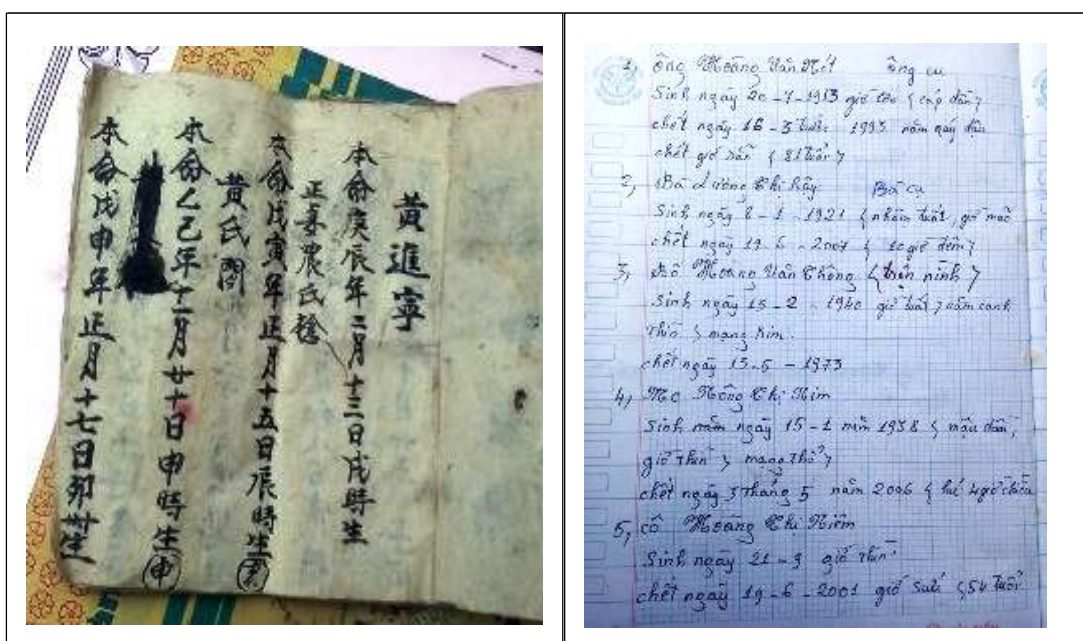 黃進寧
本命庚辰年二月十三日戌時生
正妻農氏
本命戊寅年正月十五日辰時生
黃氏閣
本命乙己年十二月廿十日申時生 申
本命戊申年正月十七日卯廿生
1, ông Hoàng Văn ông cụ
Sinh ngày 20-7-1913 giờ
chết ngày 16-3 1993 năm quý dậu
chết giờ dần ( 81 tuổi )
2, Bà Lương Thị Bà cụ
Sinh ngày 8-1-1921 ( nhâm tuất, giờ mão
chết ngày 19-5-2007 ( 10 giờ đêm )
3, Bố Hoàng Văn Thông
Sinh ngày 15-2-1940 giờ tuất, năm canh
thìn ) mạng kim.
chết ngày 15-5-1973
4, Mẹ Nông Thị Nim
Sinh năm ngày 15-1 năm 1938 ( mậu dần,
giờ thìn ) mạng thổ )
chết ngày 3 tháng 5 năm 2006 ( lúc 4 giờ chiều
5, cô Hoàng Thị Niêm
Sinh ngày 21-9 giờ thìn
chết ngày 19-6-2001 giờ sửu ( 54 tuổi